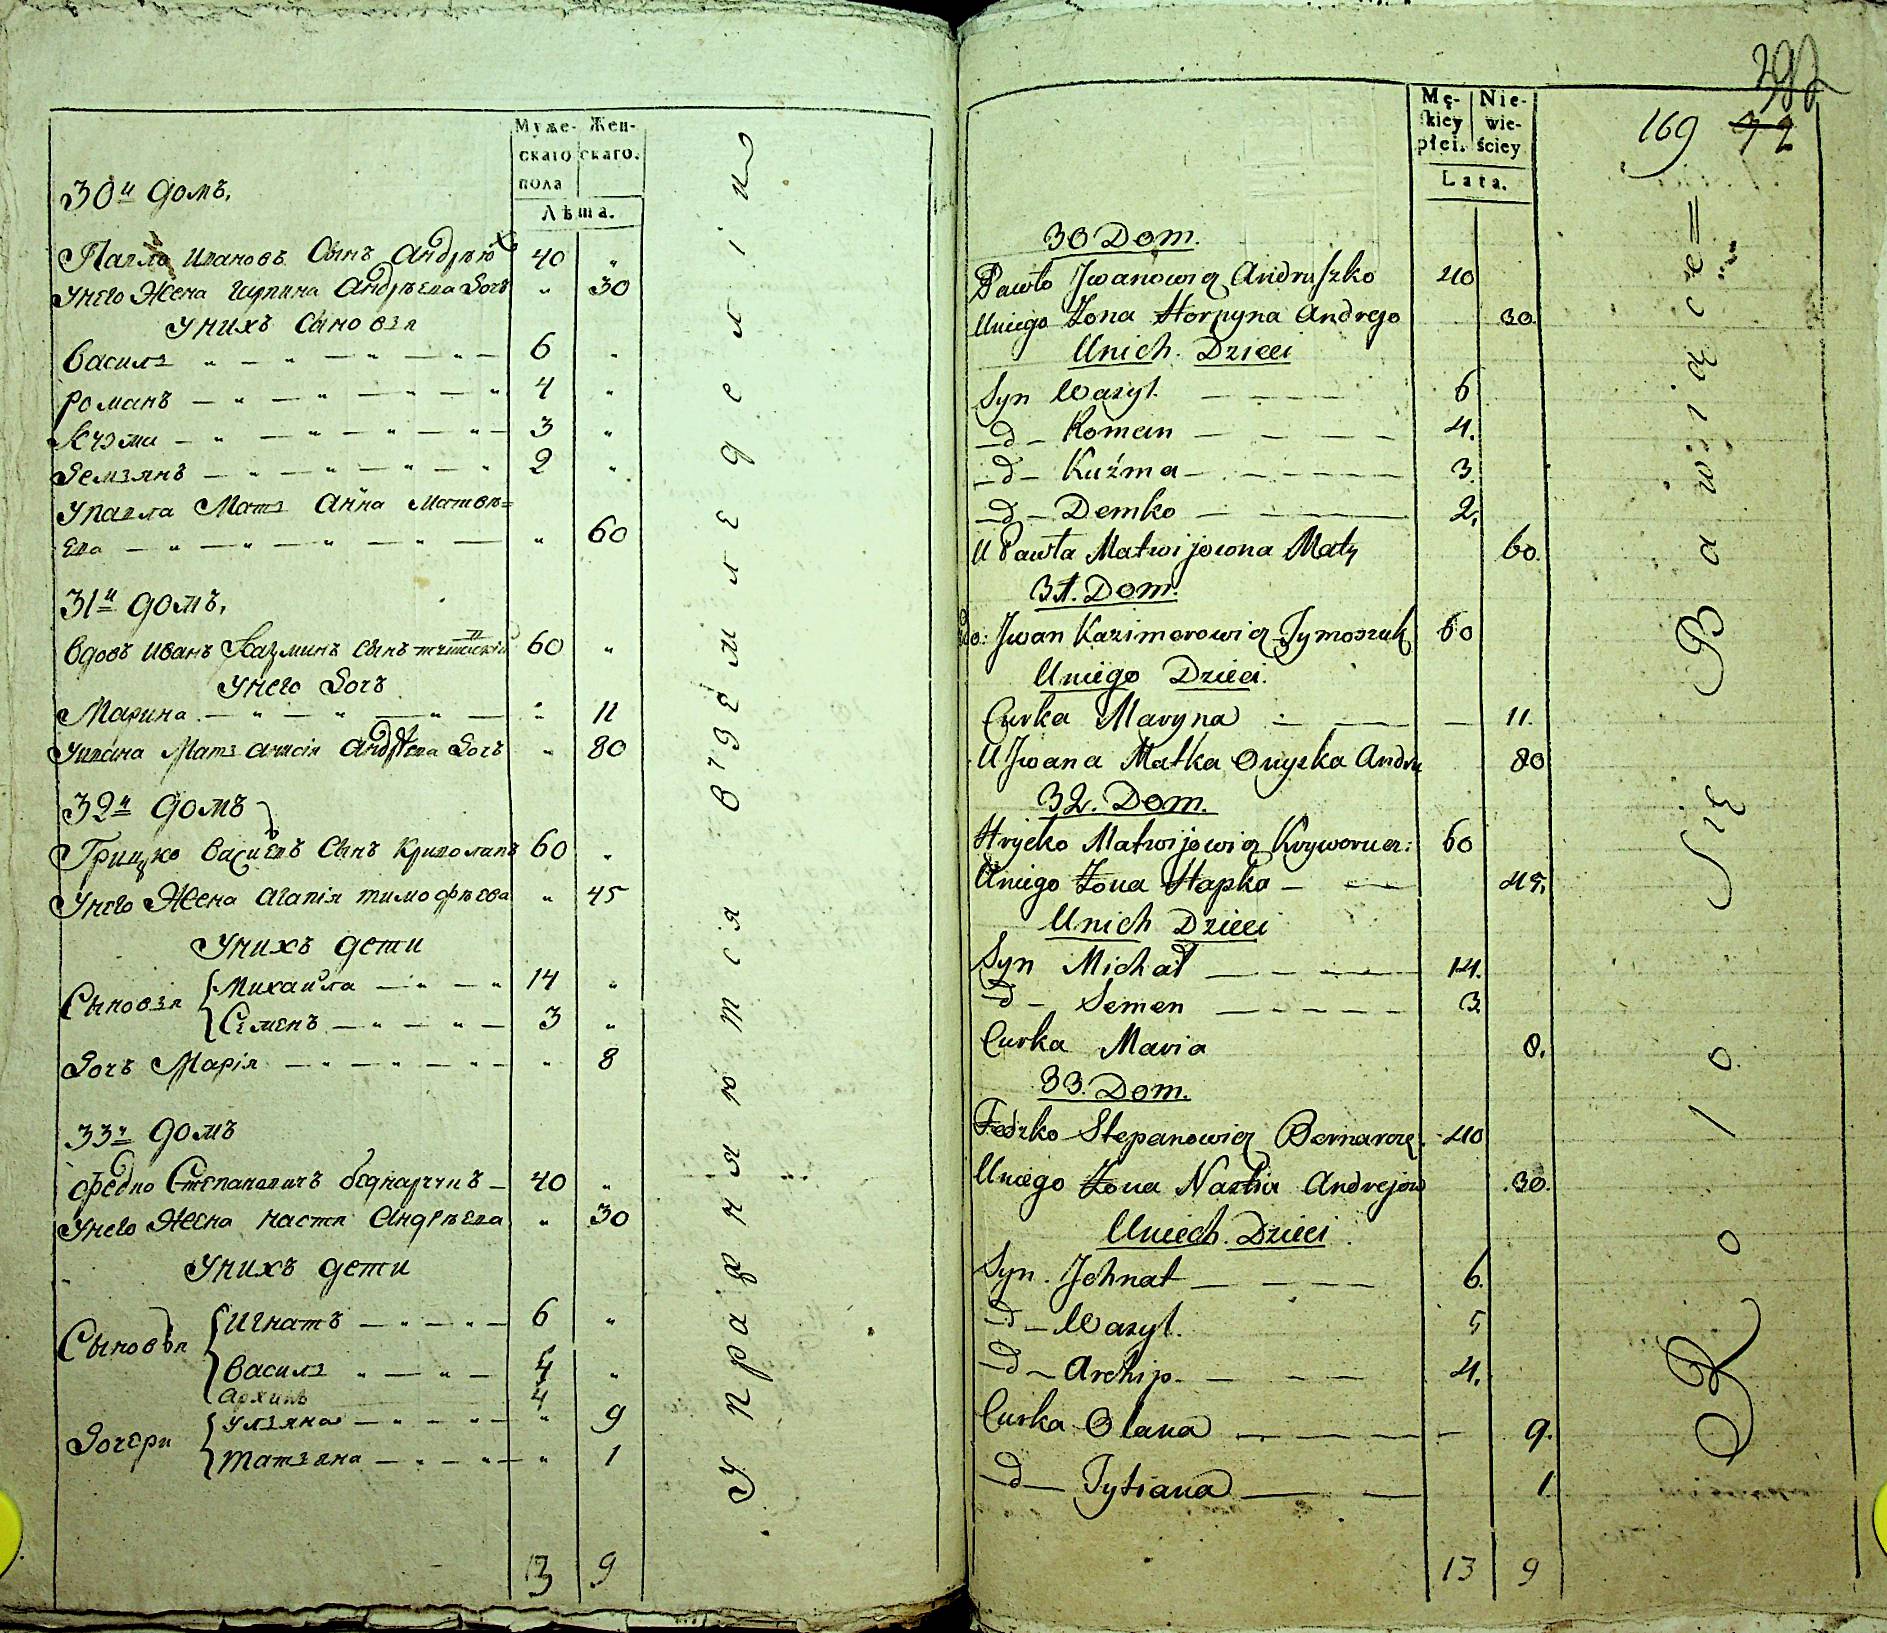 Муже-
скаго
пола
Жен-
скаго.
Лѣта.
30й домъ,
Павло Ивановъ Сынъ 40 "
Унего Жена Андрѣева Дочь " 30
Унихъ Сыновья
Василь 6 "
Романъ 4 "
Кузма 3 "
Демьянъ 2 "
Упавла Мать Анна Матвѣ=
ева " 60
31й домъ,
Вдовъ Иванъ Казминъ Сынъ 60 "
Унего Дочь
Марина " 11
Уивана Мать Андрѣева Дочь " 80
32й домъ
Грицко Васильевъ Сынъ 60 "
Унего Жена Агапія тимофѣева " 45
Унихъ дети
Сыновья { Михайла 14 "
Семенъ 3 "
Дочь Марія " 8
33й домъ
Федко Степановичъ беднарчикъ 40 "
Унего Жена Настя Андрѣева " 30
Унихъ дети
Сыновья { Игнатъ 6 "
Василь "
Архипъ 4
Дочери { Ульяна " 9
Татьяна " 1
13 9
Упражняются вземледелии
Mę-
skiey
płci.
Nie-
wie-
ściey
Lata.
169 72
30 Dom.
Pawło Jwanowicz Andruszko 40
Uniego Żona Horpyna Andrejo 30.
Unich Dzieci
Syn Wasyl. 6
-d- Roman 4.
-d- Kuźma 3.
-d- Demko 2.
U Pawła Matwijowna Maty 60.
31. Dom.
Wdo: Jwan Kazimerowicz Tymoszuk 60
Uniego Dzieci.
Curka Maryna 11.
U Jwana Matka Onyska Andre 80
32. Dom.
Hryćko Matwijowicz Kryworucz: 60
Uniego Żona Hapka 45.
Unich Dzieci
Syn Michał 14.
-d- Semen 3
Curka Maria 8.
33. Dom.
Fedzko Stepanowicz Bernarcz. 40
Uniego Żona Nastia Andrejow 30.
Uniech Dzieci
Syn. Jehnat 6.
-d- Wasyl. 5
-d- Archip. 4.
Curka Olana 9.
-d- Tytiana 1.
13 9
Rolo Się Bawią